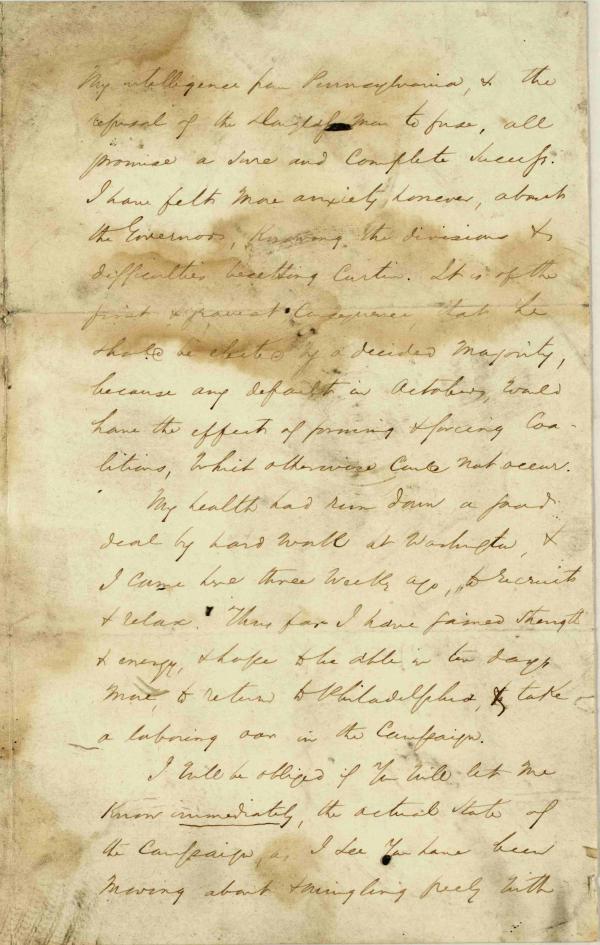 My intelligence from Pennsylvania, & the
refusal of the Douglass men to fuse, all
promise a sure and complete success.
I have felt more anxiety, however, about
the Governor, knowing the divisions &
difficulties besetting Curtin. It is of the
first & gravest consequence, that he
should be elected by a decided majority,
because any default in October, would
have the effect of forming & forcing Coa-
litions, which otherwise could not occur.
My health had run down a good
deal by hard work at Washington, &
I came here three weeks ago, to recruit
& relax. Thus far I have gained strength
& energy, & hope to be able in ten days
more, to return to Philadelphia, & take
a laboring oar in the Campaign.
I will be obliged if you will let me
know immediately, the actual state of
the Campaign, as I see you have been
moving about & mingling freely with